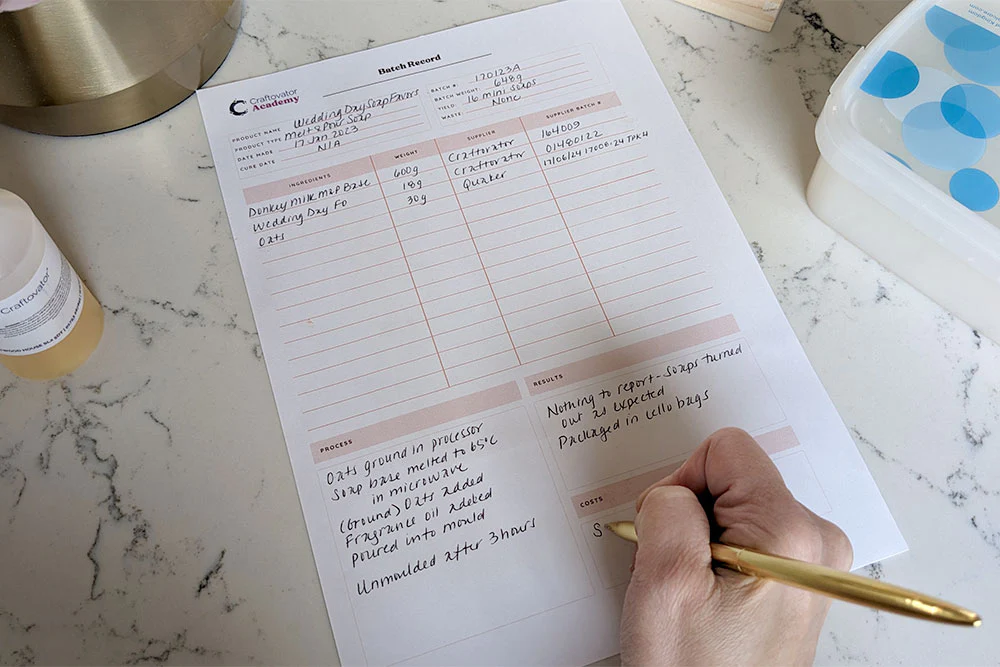 Batch Record
Craftovator
Academy
PRODUCT NAME Wedding Day Soap Favors
PRODUCT TYPE Melt & Pour Soap
DATE MADE 17 Jan 2023
CURE DATE N/A
BATCH #: 170123A
BATCH WEIGHT: 648g
YIELD: 16 mini soaps
WASTE: None
INGREDIENTS WEIGHT SUPPLIER SUPPLIER BATCH #
Donkey Milk M&P Base 600g Craftovator 164009
Wedding Day FO 18g Craftovator 01480122
Oats 30g Quaker 17/06/24
PROCESS
Oats ground in processor
Soap base melted to 65°C
in microwave
(Ground) Oats added
Fragrance oil added
Poured into mould
Unmoulded after 3 hours
RESULTS
Nothing to report - soaps turned
out as expected
Packaged in cello bags
COSTS
S
Craftovator